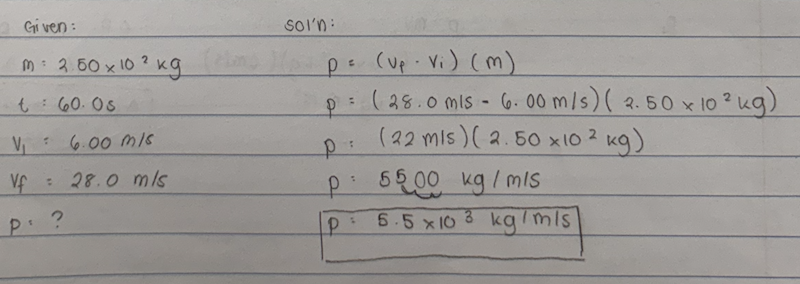 Given:
m = 2.50 x 10² kg
t = 60.0s
Vi = 6.00 m/s
Vf = 28.0 m/s
p = ?
sol'n:
p = (Vf - Vi) (m)
p = (28.0 m/s - 6.00 m/s)(2.50 x 10² kg)
p = (22 m/s)(2.50 x 10² kg)
p = 5500 kg/m/s
p = 5.5 x 10³ kg/m/s